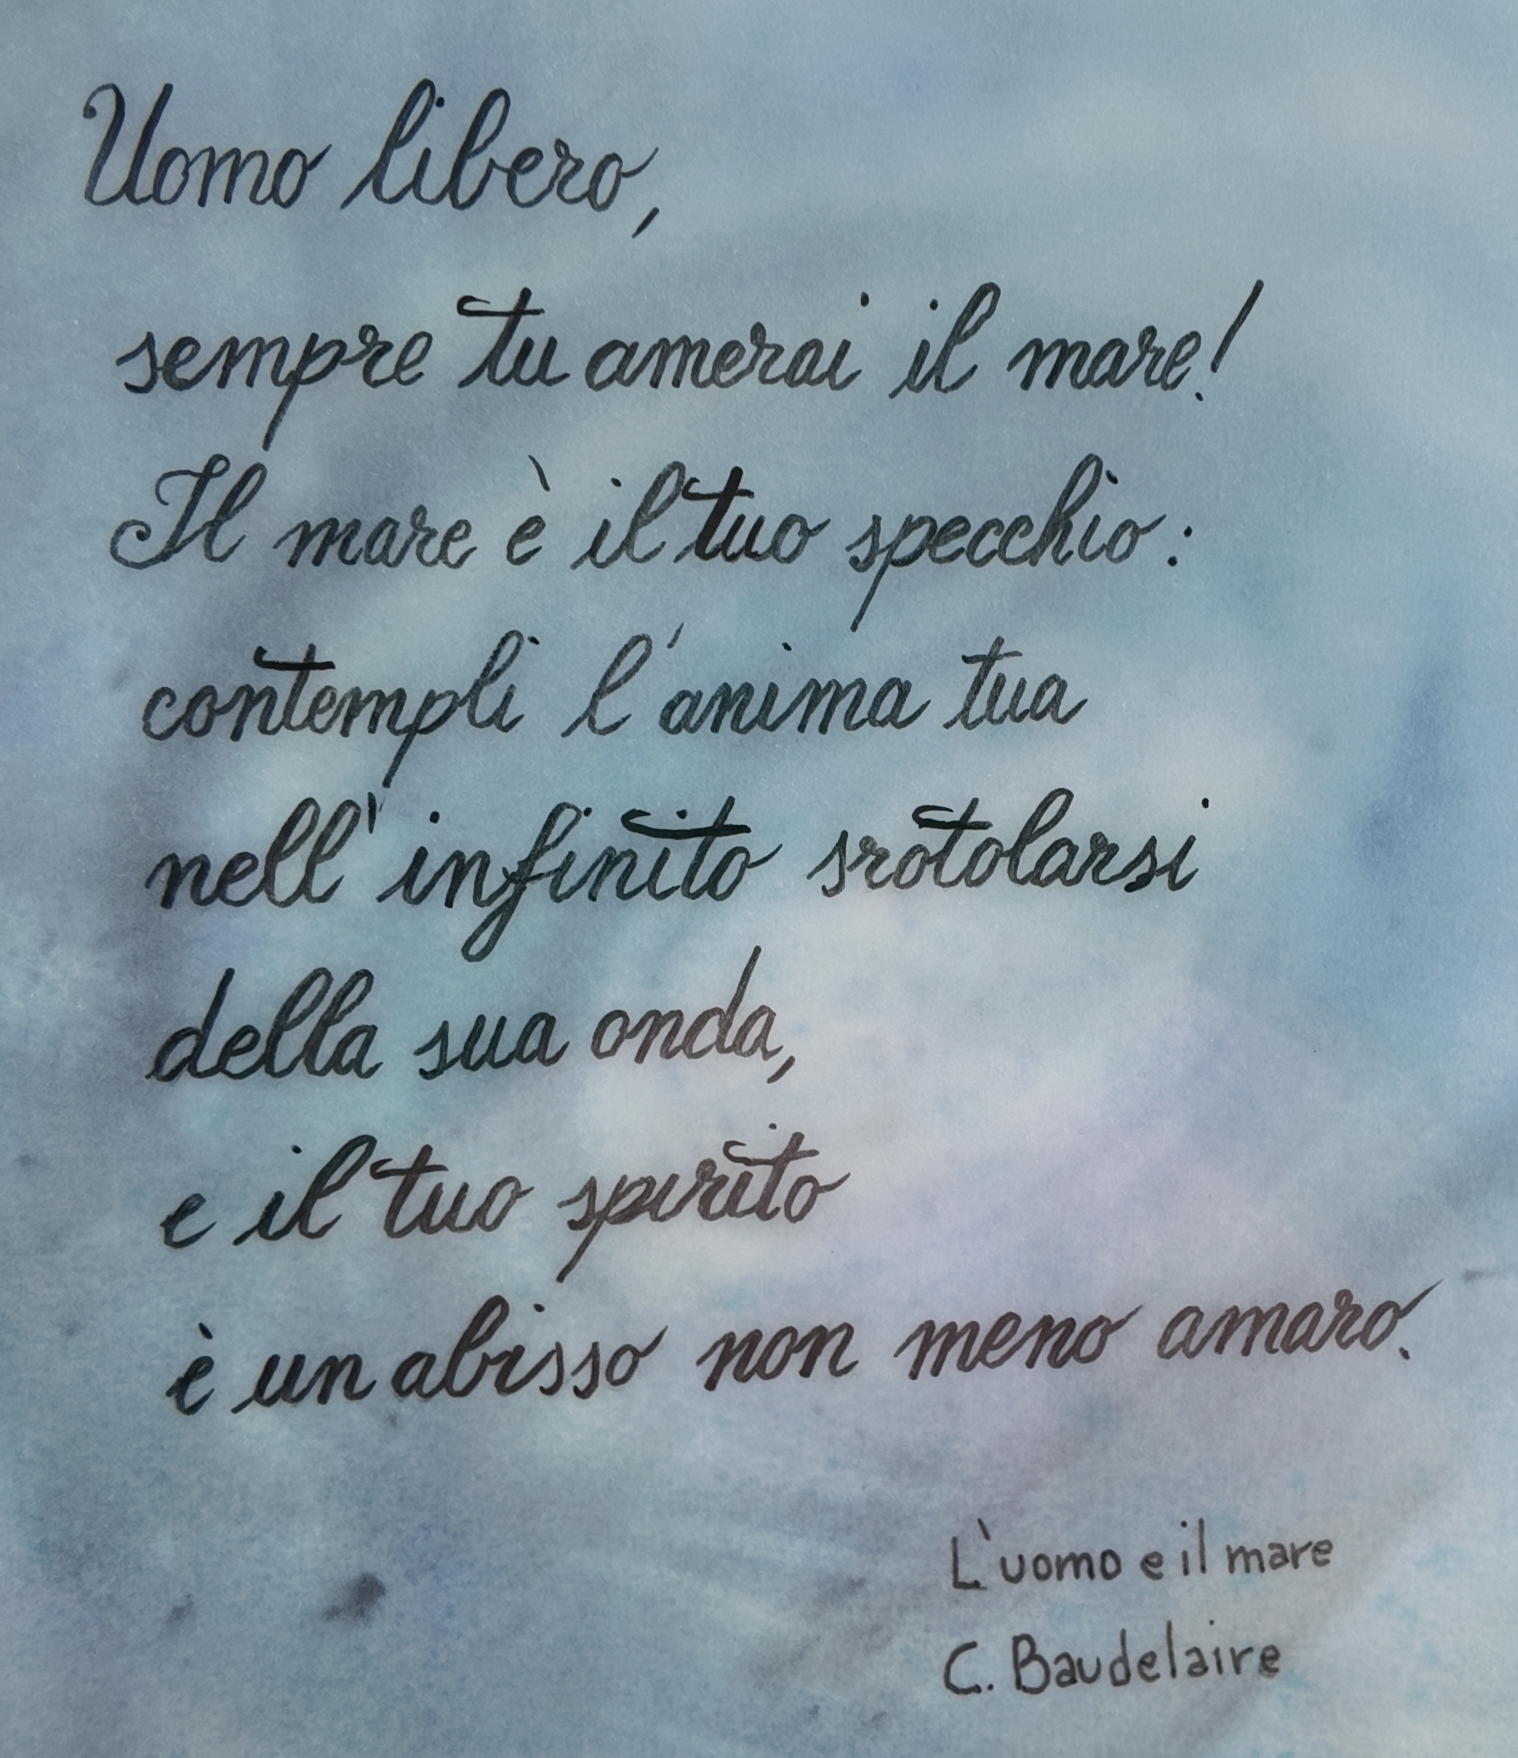 Uomo libero,
sempre tu amerai il mare!
Il mare è il tuo specchio:
contempli l'anima tua
nell'infinito srotolarsi
della sua onda,
e il tuo spirito
è un abisso non meno amaro.
L'uomo e il mare
C. Baudelaire